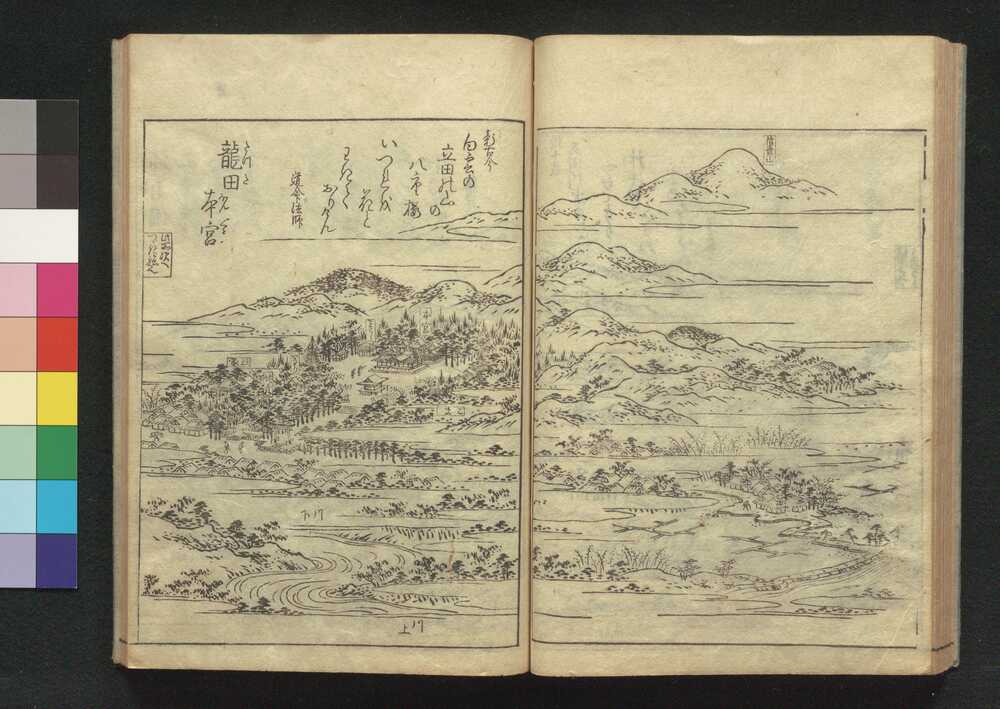 信貴山
新古今
白雲の
立田の山の
八重桜
いつれを
花と
わきて
おりけん
道命法師
龍田
本宮
本宮
川下
川上